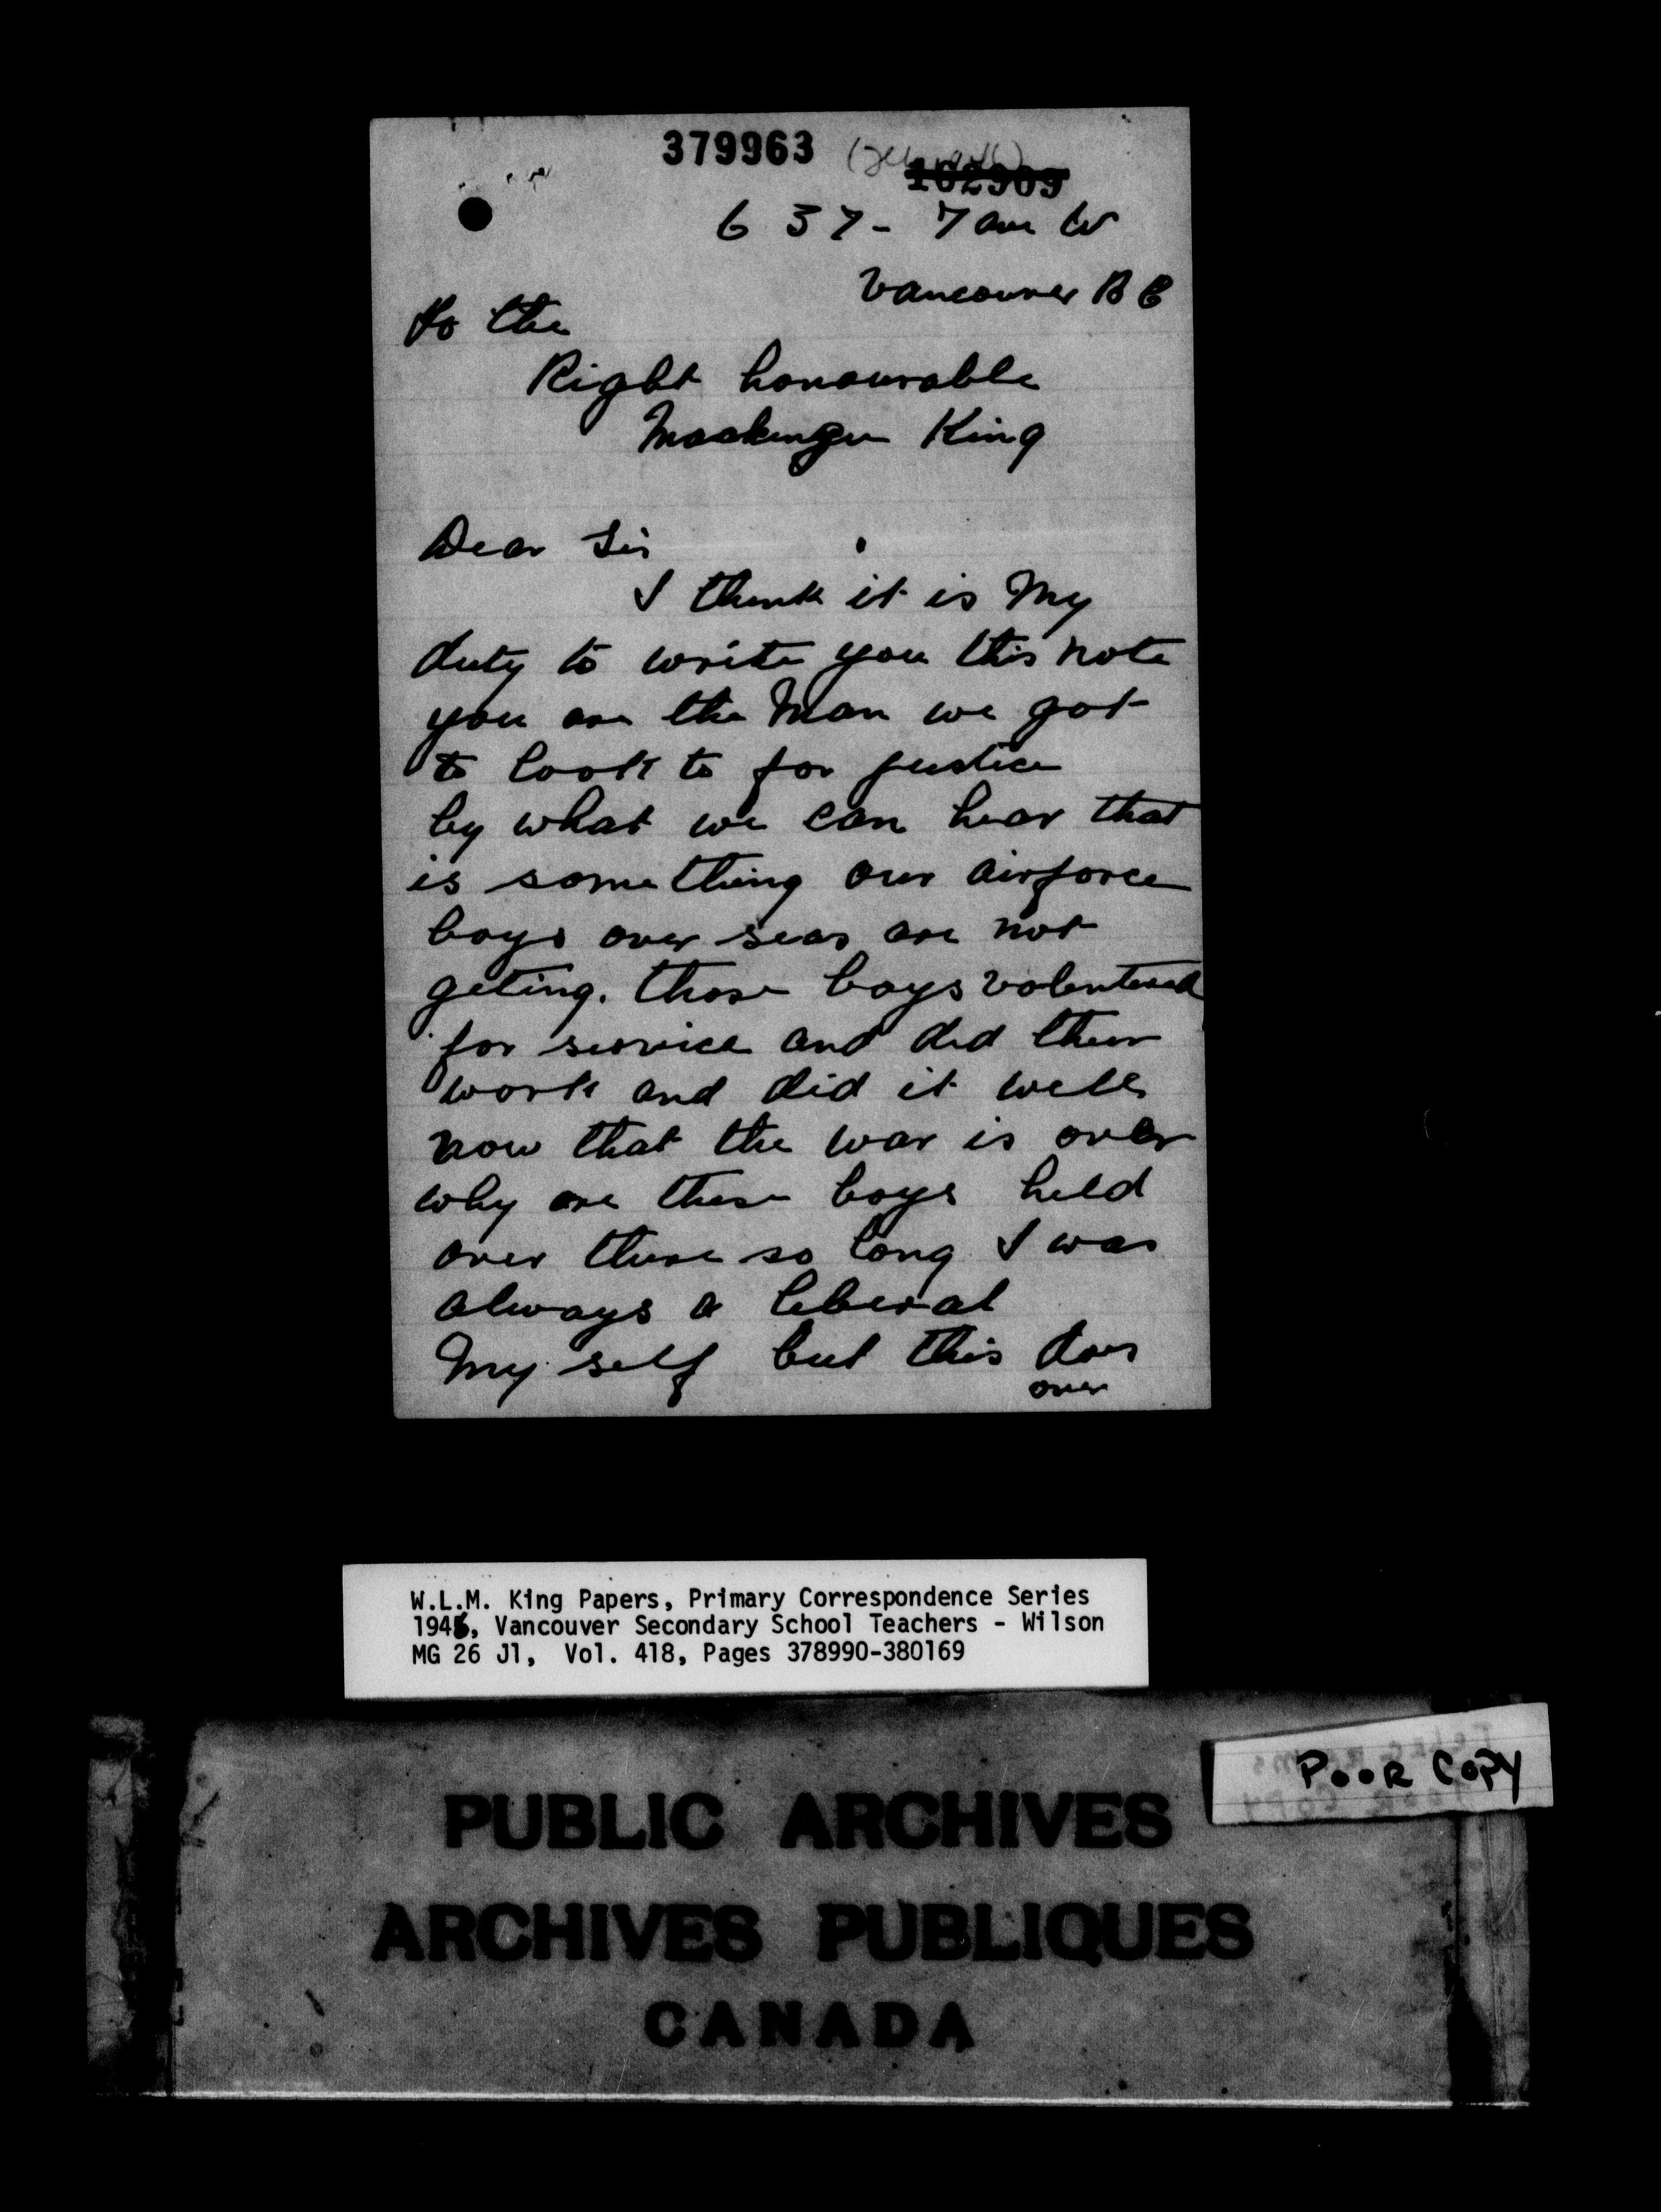 379963
162909
637 - 7 ave W
Vancouver B C
to the
Right honourable
Mackenzie King
Dear Sir
I think it is My
duty to write you this note
you are the Man we got
to look to for justice
by what we can hear that
is some thing our airforce
boys over seas are not
geting. those boys volentered
for service and did their
work and did it well
now that the war is over
why are these boys held
over there so long I was
always a liberal
My self but this does
over
W.L.M. King Papers, Primary Correspondence Series
1946, Vancouver Secondary School Teachers - Wilson
MG 26 J1, Vol. 418, Pages 378990-380169
POOR COPY
PUBLIC ARCHIVES
ARCHIVES PUBLIQUES
CANADA